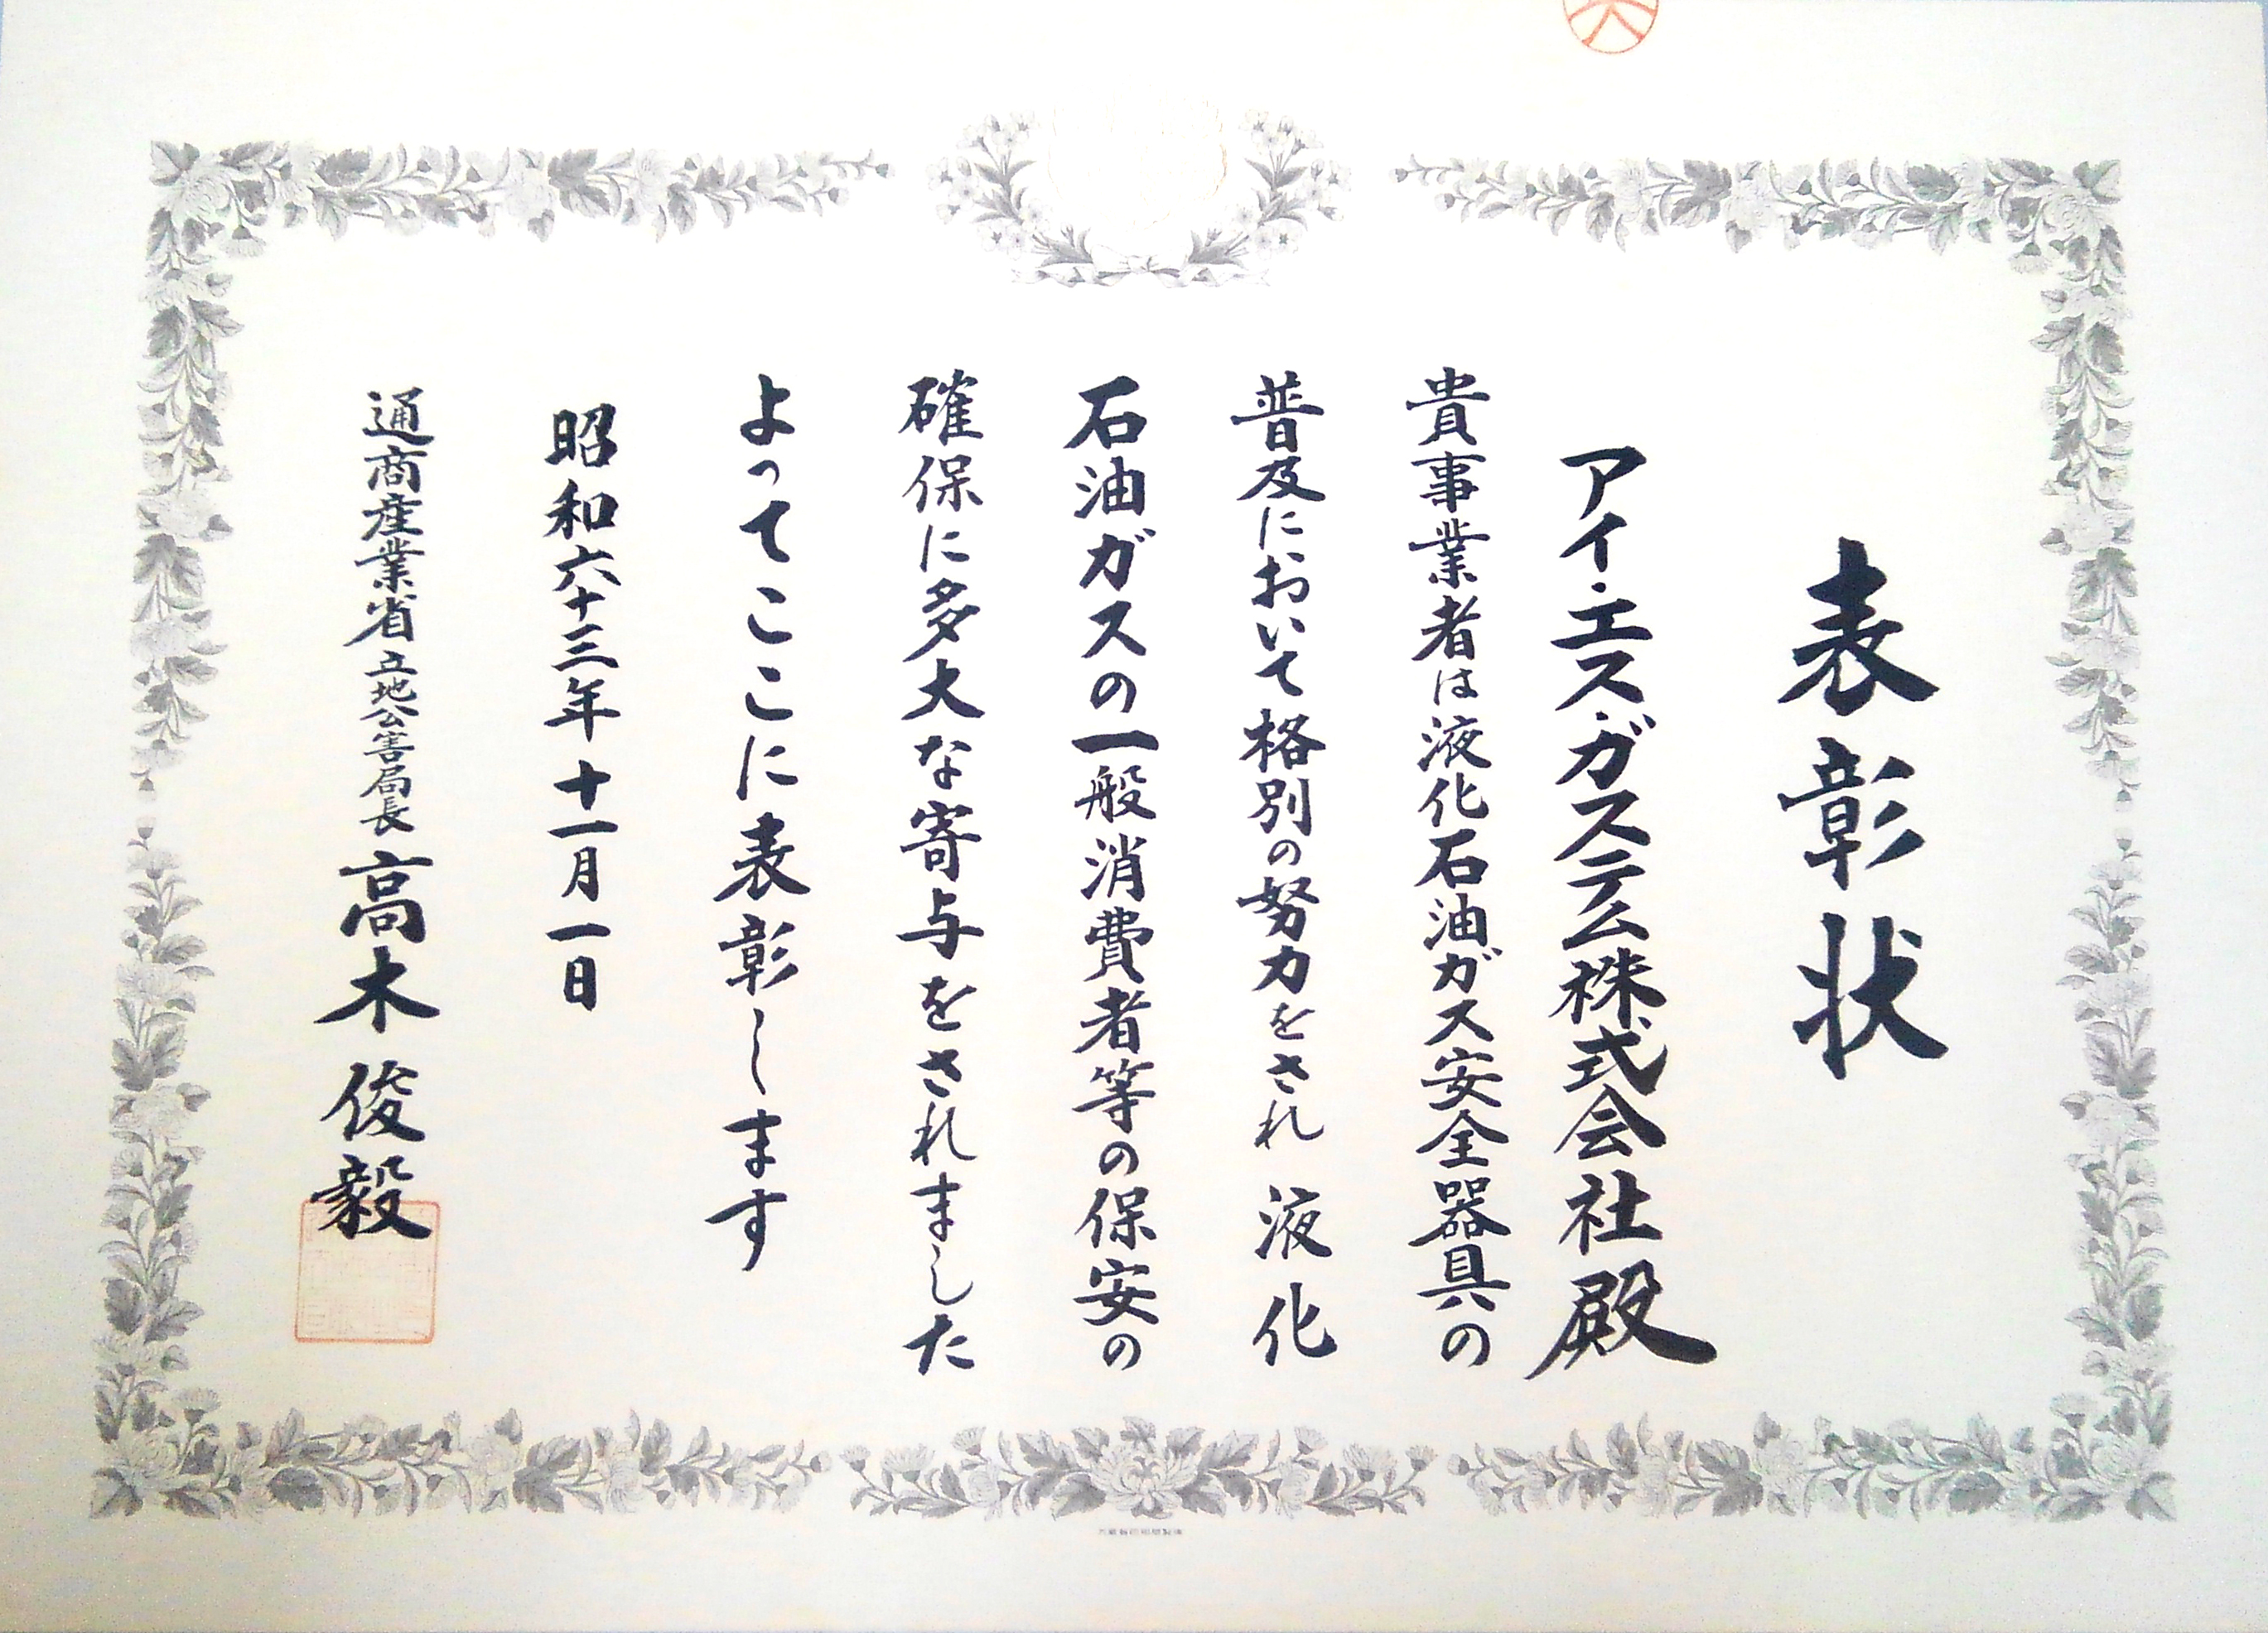 表彰状
アイ・エス・ガステム株式会社殿
貴事業者は液化石油ガス安全器具の
普及において格別の努力をされ液化
石油ガスの一般消費者等の保安の
確保に多大な寄与をされました
よってここに表彰します
昭和六十三年十一月一日
通商産業省立地公害局長高木俊毅